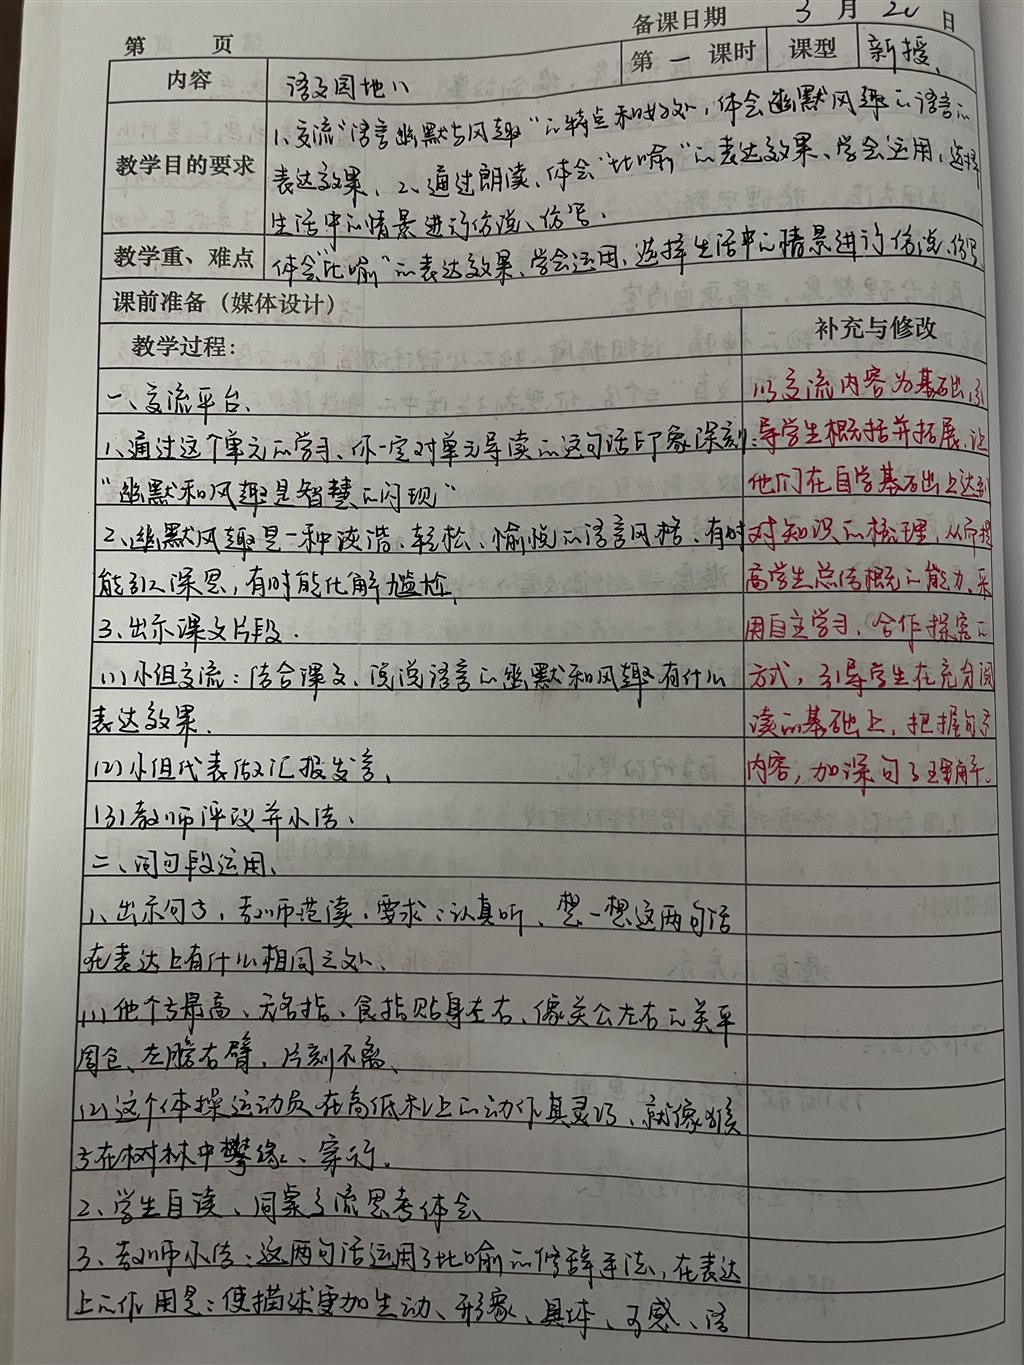 备课日期 3 月 20 日
第 页 第 一 课时 课型 新授、
内容 语文园地八
教学目的要求
1、交流“语言幽默与风趣”的特点和好处,体会幽默风趣的语言的
表达效果、2、通过朗读、体会“比喻”的表达效果、学会运用,选择
生活中的情景进行仿说、仿写.
教学重、难点 体会“比喻”的表达效果、学会运用、选择生活中的情景进行仿说、仿写
课前准备(媒体设计)
教学过程:
一、交流平台、
1、通过这个单元的学习、你一定对单元导读的这句话印象深刻:
“幽默和风趣是智慧的闪现”
2、幽默风趣是一种诙谐、轻松、愉悦的语言风格、有时
能引人深思,有时能化解尴尬、
3、出示课文片段.
(1)小组交流:结合课文、说说语言的幽默和风趣有什么
表达效果.
(2)小组代表做汇报发言、
(3)教师评议并小结、
二、词句段运用、
1、出示句子,教师范读.要求:认真听、想一想这两句话
在表达上有什么相同之处、
(1)他个子最高、无名指、食指贴身左右、像关公左右的关平
周仓、左膀右臂、片刻不离、
(2)这个体操运动员在高低杠上的动作真灵巧、就像猴
子在树林中攀缘、穿行.
2、学生自读、同桌交流思考体会
3、教师小结:这两句话运用了比喻的修辞手法,在表达
上的作用是:使描述更加生动、形象、具体、可感、语
补充与修改
以交流内容为基础,引
导学生概括并拓展、让
他们在自学基础上达到
对知识的梳理、从而提
高学生总结概括的能力、采
用自主学习、合作探究的
方式,引导学生在充分阅
读的基础上、把握句子
内容,加深句子理解.